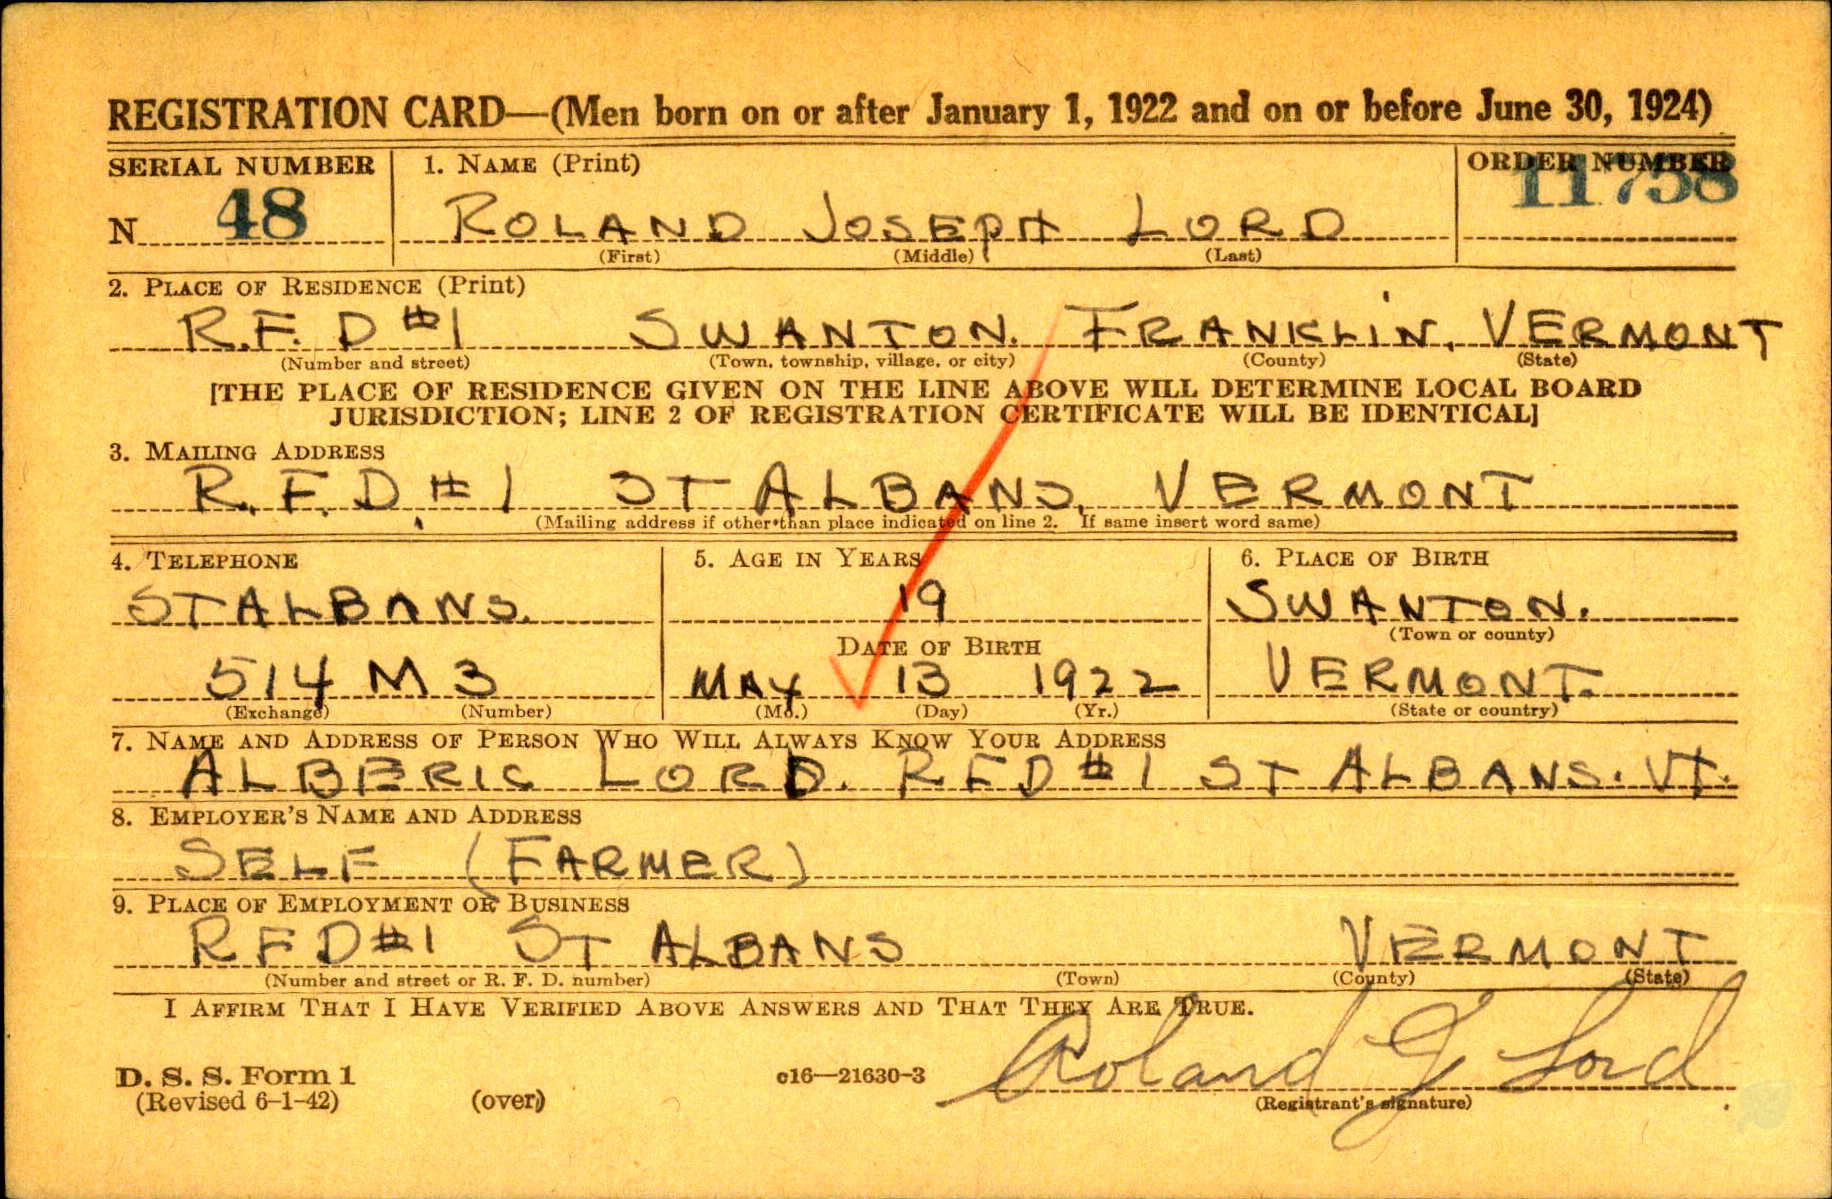 REGISTRATION CARD—(Men born on or after January 1, 1922 and on or before June 30, 1924)
SERIAL NUMBER 1. NAME (Print) ORDER NUMBER
N 48 ROLAND JOSEPH LORD 11758
(First) (Middle) (Last)
2. PLACE OF RESIDENCE (Print)
R.F.D #1 SWANTON. FRANKLIN, VERMONT
(Number and street) (Town, township, village, or city) (County) (State)
[THE PLACE OF RESIDENCE GIVEN ON THE LINE ABOVE WILL DETERMINE LOCAL BOARD
JURISDICTION; LINE 2 OF REGISTRATION CERTIFICATE WILL BE IDENTICAL]
3. MAILING ADDRESS
R.F.D. #1 ST ALBANS, VERMONT
(Mailing address if other than place indicated on line 2. If same insert word same)
4. TELEPHONE 5. AGE IN YEARS 6. PLACE OF BIRTH
ST ALBANS. 19 SWANTON.
DATE OF BIRTH (Town or county)
514 M 3 MAY 13 1922 VERMONT.
(Exchange) (Number) (Mo.) (Day) (Yr.) (State or country)
7. NAME AND ADDRESS OF PERSON WHO WILL ALWAYS KNOW YOUR ADDRESS
ALBERIC LORD. RFD #1 ST ALBANS. VT.
8. EMPLOYER'S NAME AND ADDRESS
SELF (FARMER)
9. PLACE OF EMPLOYMENT OR BUSINESS
RFD #1 ST ALBANS VERMONT
(Number and street or R. F. D. number) (Town) (County) (State)
I AFFIRM THAT I HAVE VERIFIED ABOVE ANSWERS AND THAT THEY ARE TRUE.
D. S. S. Form 1 c16—21630-3 Roland J Lord
(Revised 6-1-42) (over) (Registrant's signature)